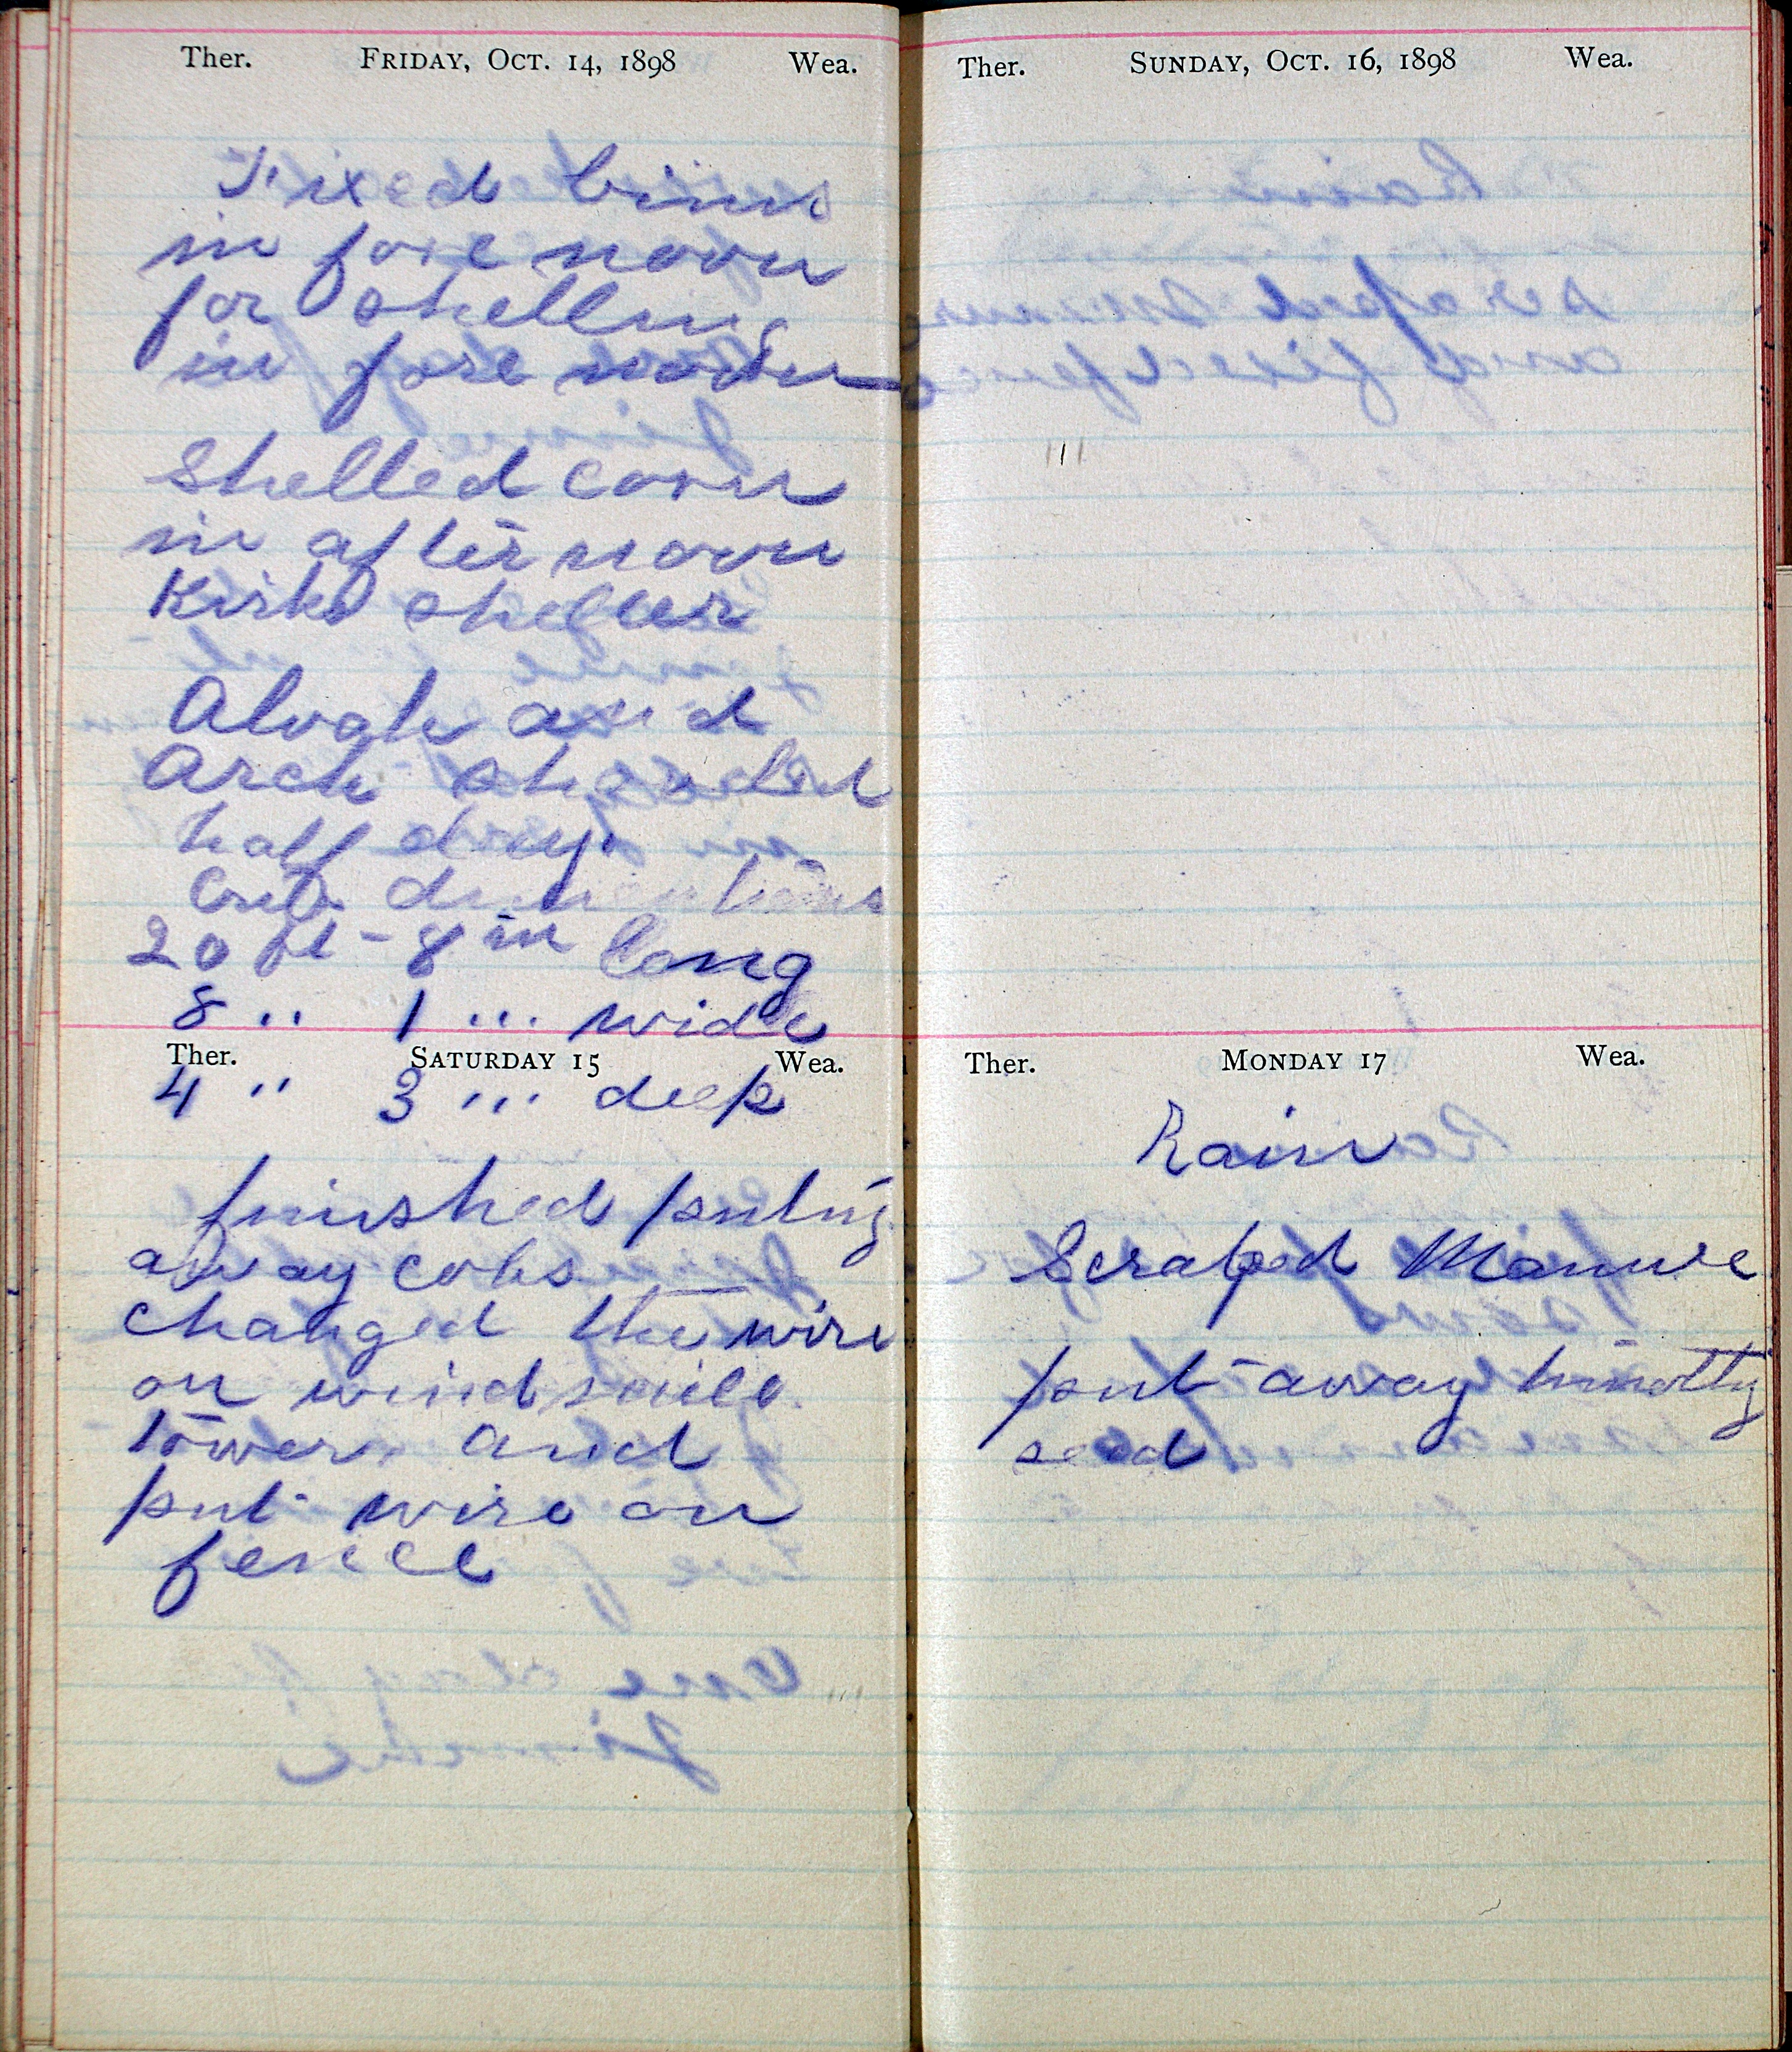 Ther. Friday, Oct. 14, 1898 Wea.
Fixed binns
in fore noon
for shelling
in fore noon
Shelled corn
in after noon
Kirks sheller
Alvah and
Arch
half day.
Crib
20 ft - 8 in long
8 " 1 "' wide
Ther. Saturday 15 Wea.
4 " 3 "' deep
finished puting
away cobs
changed the wire
on wind mill
tower. and
put wire on
fence
Ther. Sunday, Oct. 16, 1898 Wea.
Ther. Monday 17 Wea.
Rain
Scraped Manure
put away timothy
seed